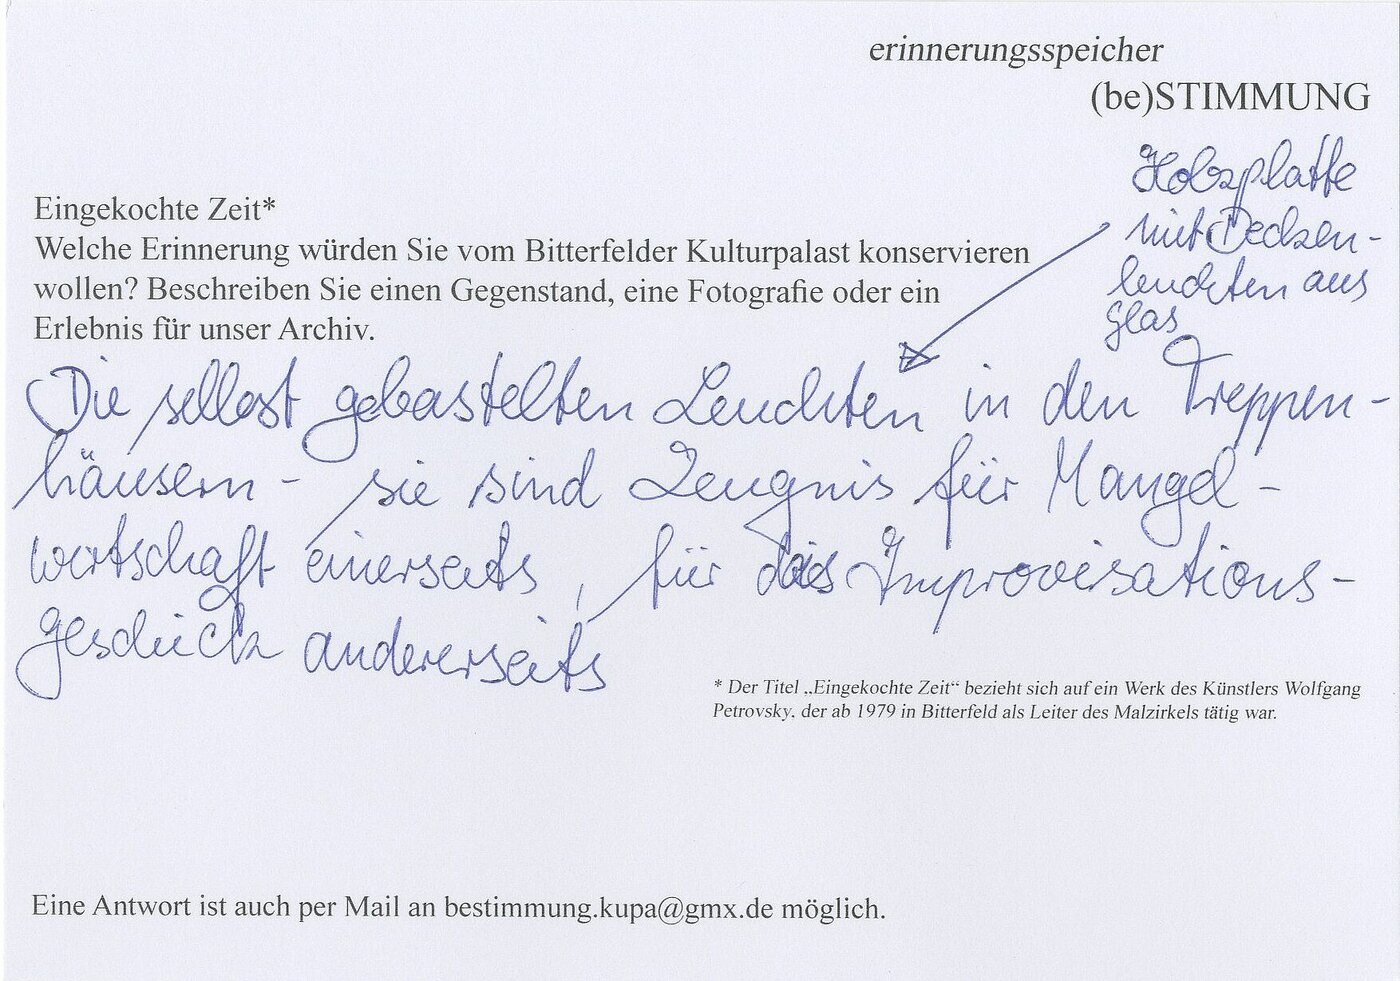 erinnerungsspeicher
(be)STIMMUNG
Holzplatte
mit Decken-
leuchten aus
Glas
Eingekochte Zeit*
Welche Erinnerung würden Sie vom Bitterfelder Kulturpalast konservieren
wollen? Beschreiben Sie einen Gegenstand, eine Fotografie oder ein
Erlebnis für unser Archiv.
Die selbst gebastelten Leuchten in den Treppen-
häusern - sie sind Zeugnis für Mangel-
wirtschaft einerseits, für das Improvisations-
geschick andererseits
* Der Titel „Eingekochte Zeit“ bezieht sich auf ein Werk des Künstlers Wolfgang
Petrovsky, der ab 1979 in Bitterfeld als Leiter des Malzirkels tätig war.
Eine Antwort ist auch per Mail an bestimmung.kupa@gmx.de möglich.